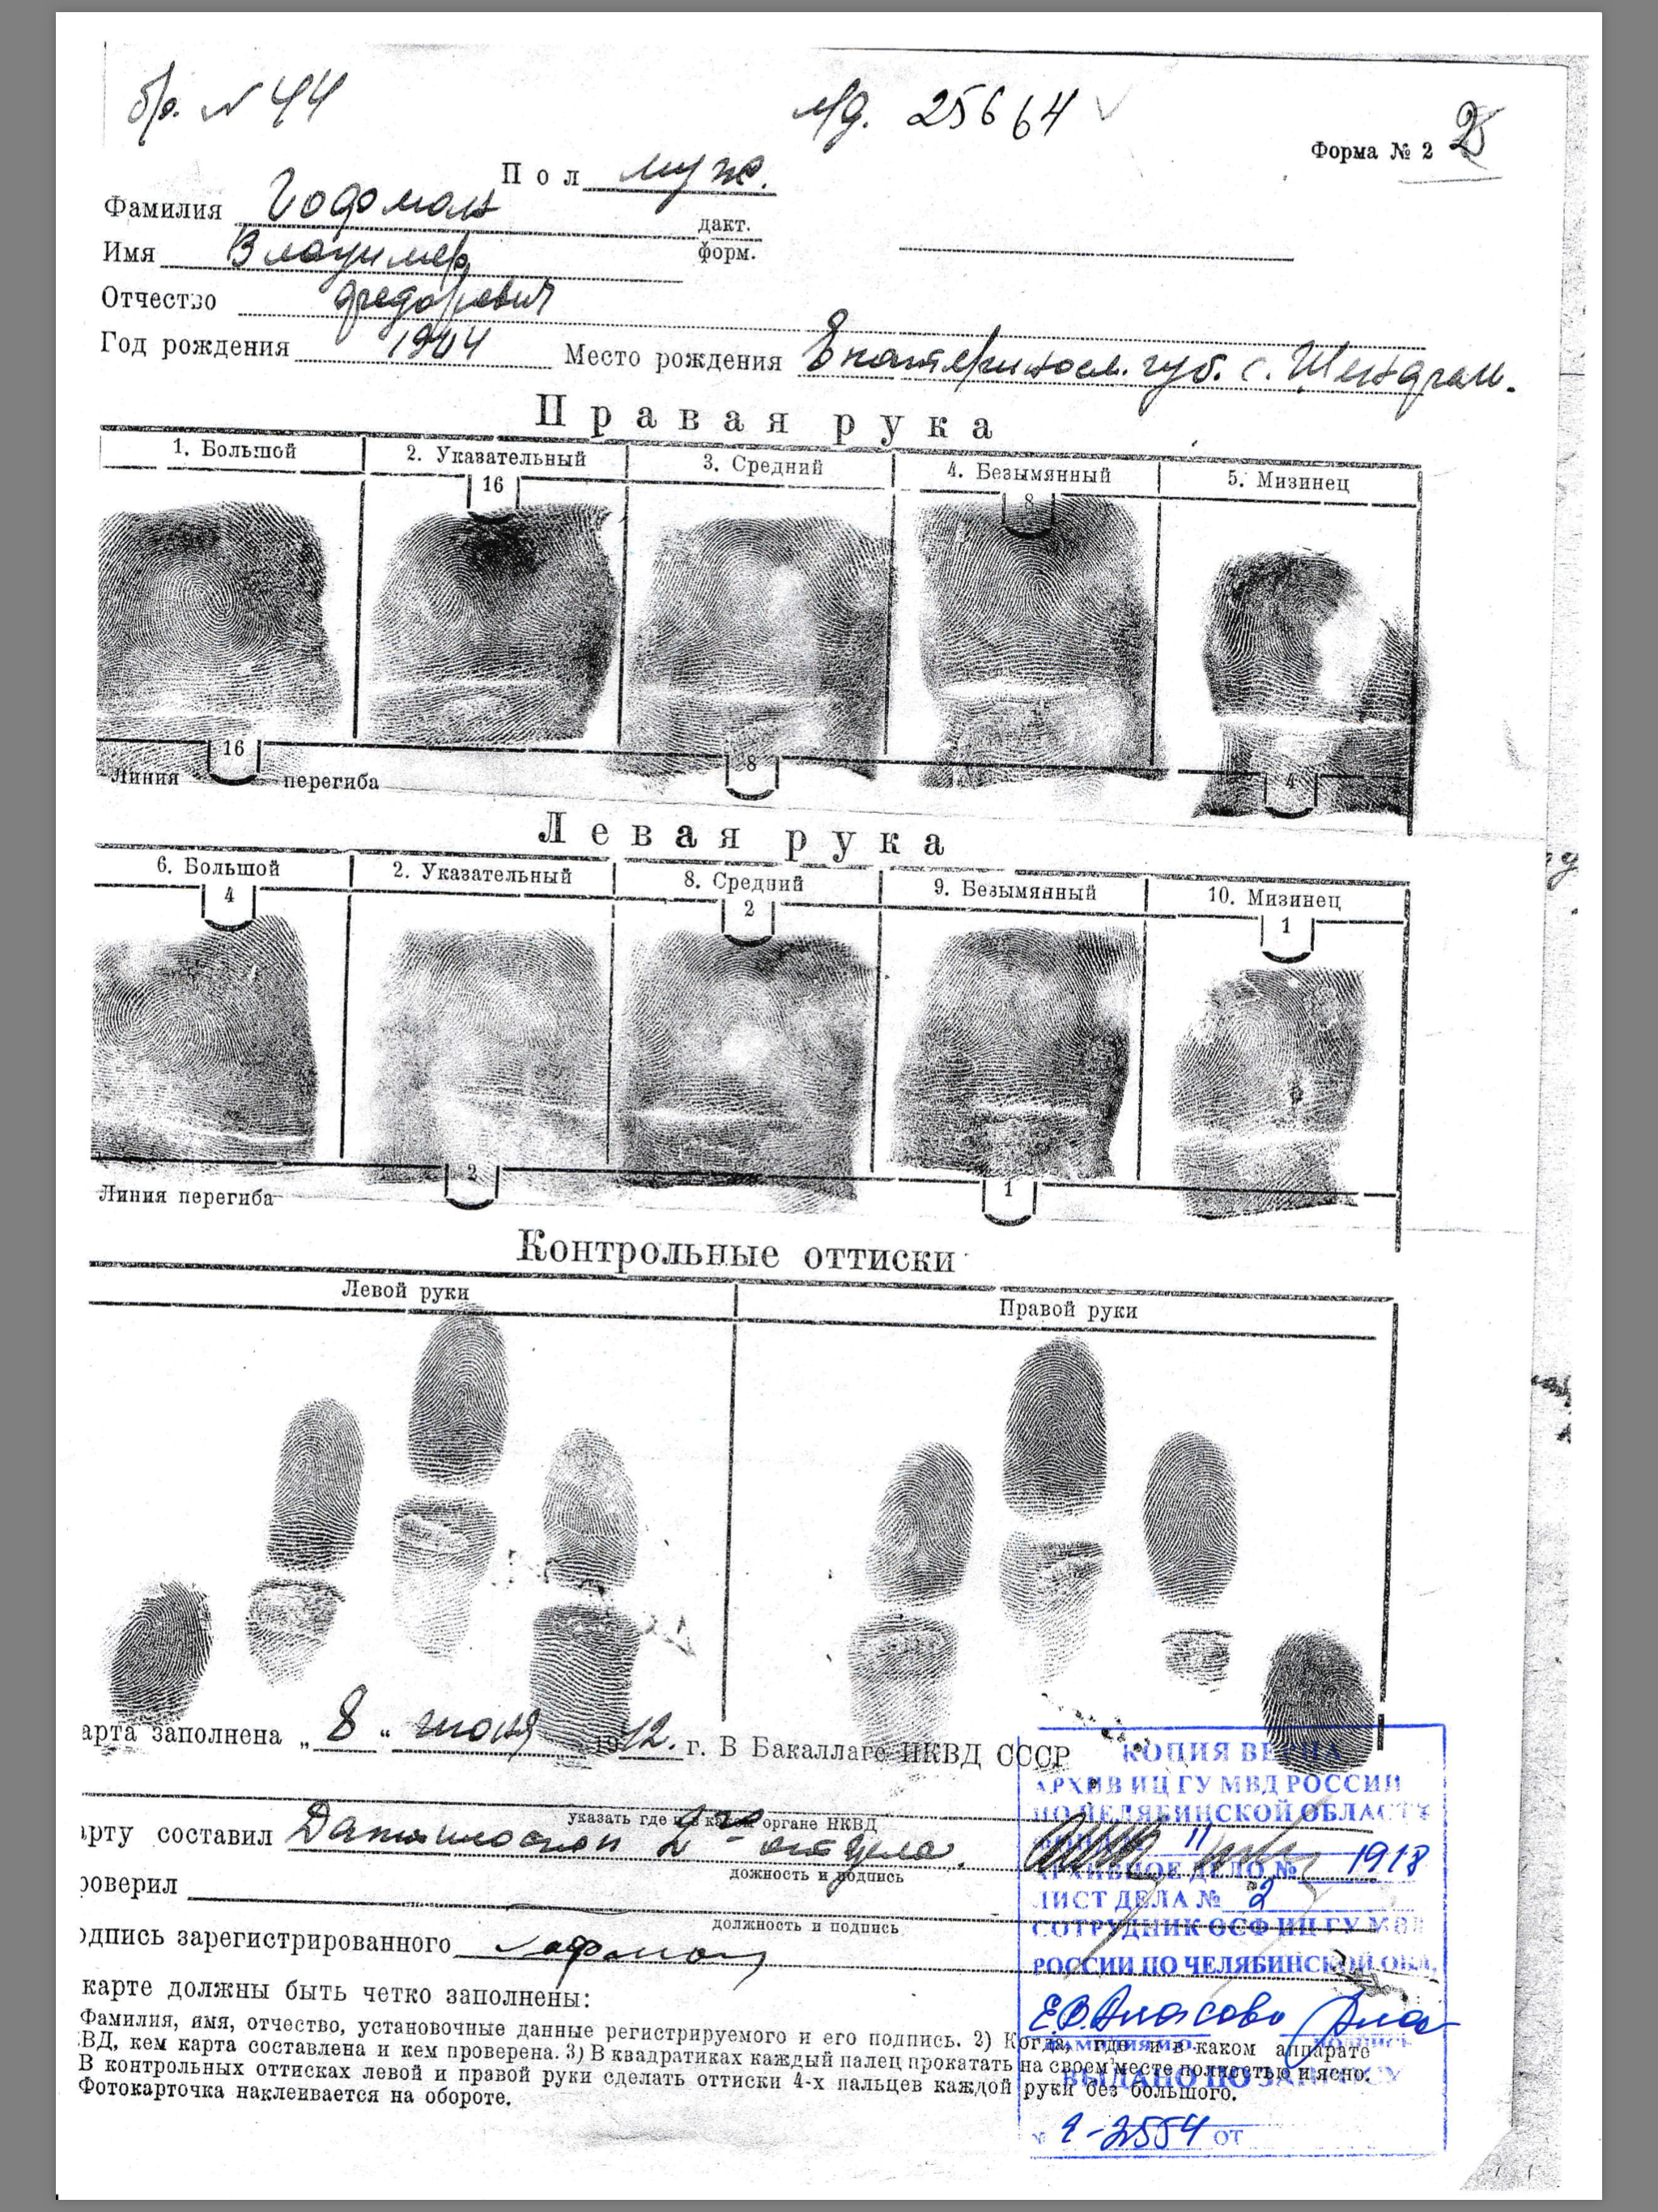 бр. № 44
л/д. 25664
Форма № 2
2
Пол муж.
Фамилия Гофман
дакт.
форм.
Имя Владимир
Отчество Федорович
Год рождения 1904 Место рождения Екатериносл. губ. с.
Правая рука
1. Большой 2. Указательный 3. Средний 4. Безымянный 5. Мизинец
16 8
16 8 4
Линия перегиба
Левая рука
6. Большой 2. Указательный 8. Средний 9. Безымянный 10. Мизинец
4 2 1
2 1
Линия перегиба
Контрольные оттиски
Левой руки Правой руки
арта заполнена „8“ июня 1942. г. В Бакаллаге НКВД СССР
указать где и в каком органе НКВД
арту составил 2го отдела.
дожность и подпись
роверил
должность и подпись
одпись зарегистрированного Гофман
карте должны быть четко заполнены:
Фамилия, имя, отчество, установочные данные регистрируемого и его подпись. 2) Когда, где и в каком аппарате
ВД, кем карта составлена и кем проверена. 3) В квадратиках каждый палец прокатать на своем месте полностью и ясно.
В контрольных оттисках левой и правой руки сделать оттиски 4-х пальцев каждой руки без большого.
Фотокарточка наклеивается на обороте.
КОПИЯ ВЕРНА
АРХИВ ИЦ ГУ МВД РОССИИ
ПО ЧЕЛЯБИНСКОЙ ОБЛАСТИ
11
АРХИВНОЕ ДЕЛО № 1918
ЛИСТ ДЕЛА № 2
СОТРУДНИК ОСФ ИЦ ГУ МВД
РОССИИ ПО ЧЕЛЯБИНСКОЙ ОБЛ.
Е.В. Власова
ФАМИЛИЯ И.О. ПОДПИСЬ
ВЫДАНО ПО ЗАПРОСУ
№ 9-2554 ОТ